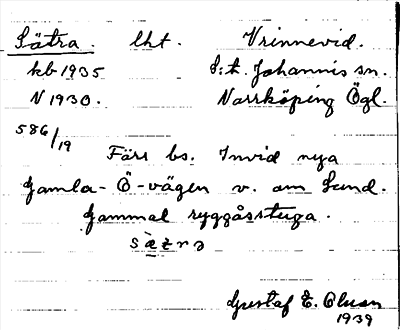 Sätra. lht. Vrinnevid.
kb 1935 S:t. Johannis sn.
N 1930. Norrköping Ögl.
586/19
Förr bs. Invid nya
Gamla-Ö-vägen v. om Lund.
Gammal ryggåsstuga.
Gustaf E. Olson
1939